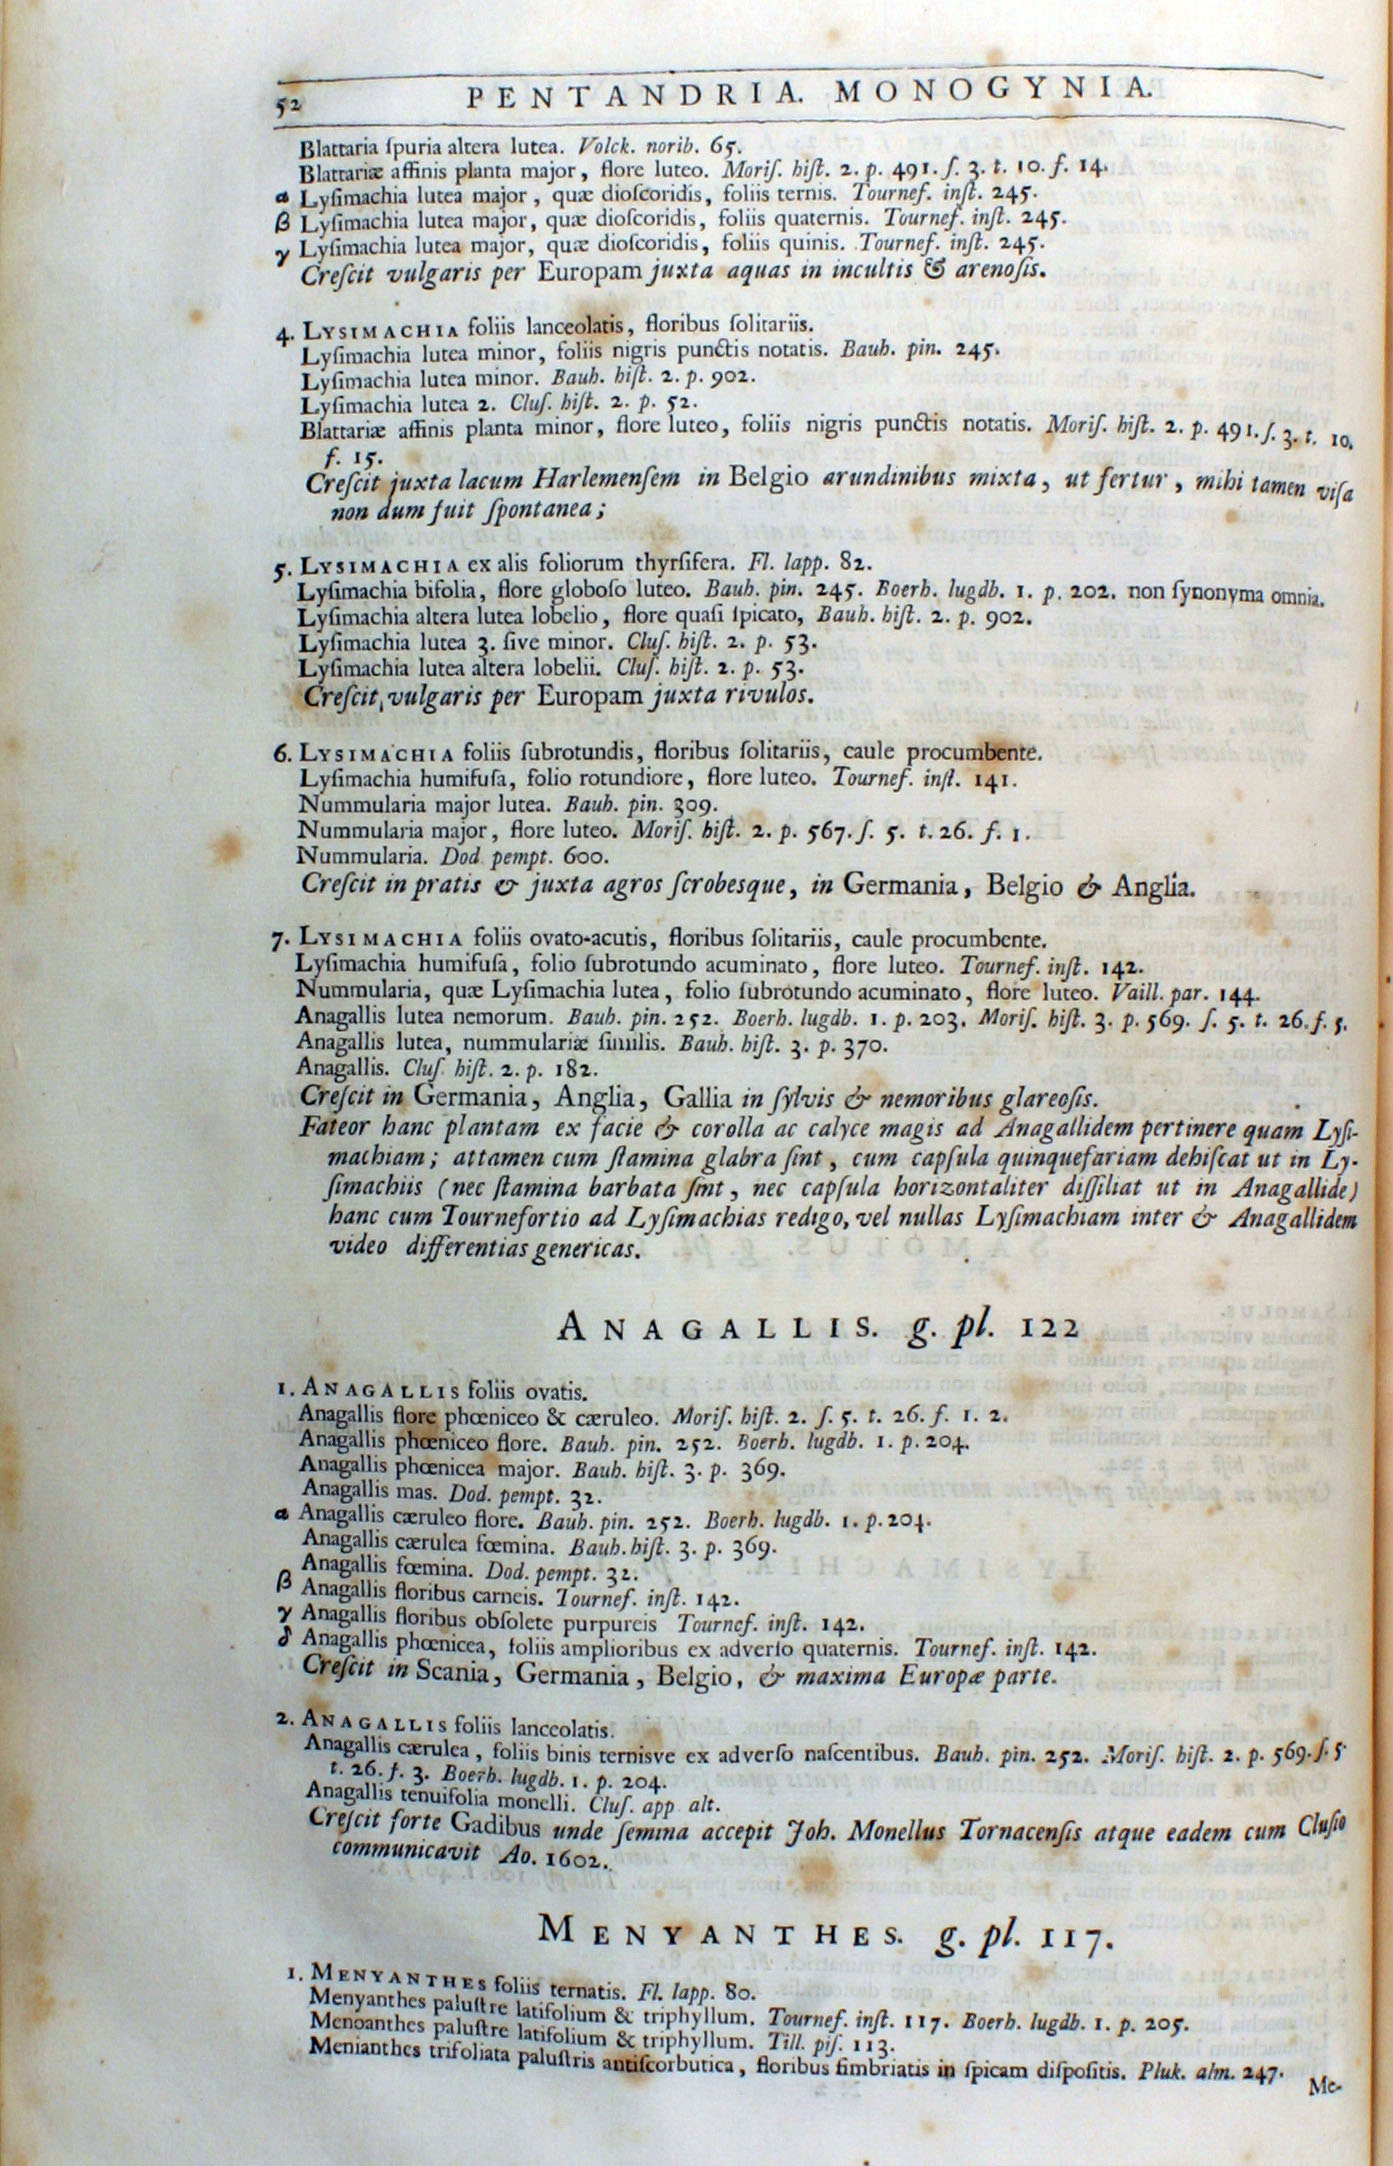 52 PENTANDRIA. MONOGYNIA.
Blattaria ſpuria altera lutea. Volck. norib. 65.
Blattariæ affinis planta major, flore luteo. Moriſ. hiſt. 2. p. 491. ſ. 3. t. 10. f. 14.
α Lyſimachia lutea major, quæ dioſcoridis, foliis ternis. Tournef. inſt. 245.
β Lyſimachia lutea major, quæ dioſcoridis, foliis quaternis. Tournef. inſt. 245.
γ Lyſimachia lutea major, quæ dioſcoridis, foliis quinis. Tournef. inſt. 245.
Creſcit vulgaris per Europam juxta aquas in incultis & arenoſis.
4. LYSIMACHIA foliis lanceolatis, floribus ſolitariis.
Lyſimachia lutea minor, foliis nigris punctis notatis. Bauh. pin. 245.
Lyſimachia lutea minor. Bauh. hiſt. 2. p. 902.
Lyſimachia lutea 2. Cluſ. hiſt. 2. p. 52.
Blattariæ affinis planta minor, flore luteo, foliis nigris punctis notatis. Moriſ. hiſt. 2. p. 491. ſ. 3. t. 10.
f. 15.
Creſcit juxta lacum Harlemenſem in Belgio arundinibus mixta, ut fertur, mihi tamen viſa
non dum fuit ſpontanea;
5. LYSIMACHIA ex alis foliorum thyrſifera. Fl. lapp. 82.
Lyſimachia bifolia, flore globoſo luteo. Bauh. pin. 245. Boerh. lugdb. 1. p. 202. non ſynonyma omnia.
Lyſimachia altera lutea lobelio, flore quaſi ſpicato, Bauh. hiſt. 2. p. 902.
Lyſimachia lutea 3. ſive minor. Cluſ. hiſt. 2. p. 53.
Lyſimachia lutea altera lobelii. Cluſ. hiſt. 2. p. 53.
Creſcit vulgaris per Europam juxta rivulos.
6. LYSIMACHIA foliis ſubrotundis, floribus ſolitariis, caule procumbente.
Lyſimachia humifuſa, folio rotundiore, flore luteo. Tournef. inſt. 141.
Nummularia major lutea. Bauh. pin. 309.
Nummularia major, flore luteo. Moriſ. hiſt. 2. p. 567. ſ. 5. t. 26. f. 1.
Nummularia. Dod pempt. 600.
Creſcit in pratis & juxta agros ſcrobesque, in Germania, Belgio & Anglia.
7. LYSIMACHIA foliis ovato-acutis, floribus ſolitariis, caule procumbente.
Lyſimachia humifuſa, folio ſubrotundo acuminato, flore luteo. Tournef. inſt. 142.
Nummularia, quæ Lyſimachia lutea, folio ſubrotundo acuminato, flore luteo. Vaill. par. 144.
Anagallis lutea nemorum. Bauh. pin. 252. Boerh. lugdb. 1. p. 203. Moriſ. hiſt. 3. p. 569. ſ. 5. t. 26. f. 5.
Anagallis lutea, nummulariæ ſimilis. Bauh. hiſt. 3. p. 370.
Anagallis. Cluſ. hiſt. 2. p. 182.
Creſcit in Germania, Anglia, Gallia in ſylvis & nemoribus glareoſis.
Fateor hanc plantam ex facie & corolla ac calyce magis ad Anagallidem pertinere quam Lyſi-
machiam; attamen cum ſtamina glabra ſint, cum capſula quinquefariam dehiſcat ut in Ly-
ſimachiis (nec ſtamina barbata ſint, nec capſula horizontaliter diſſiliat ut in Anagallide)
hanc cum Tournefortio ad Lyſimachias redigo, vel nullas Lyſimachiam inter & Anagallidem
video differentias genericas.
ANAGALLIS. g. pl. 122
1. ANAGALLIS foliis ovatis.
Anagallis flore phœniceo & cæruleo. Moriſ. hiſt. 2. ſ. 5. t. 26. f. 1. 2.
Anagallis phœniceo flore. Bauh. pin. 252. Boerh. lugdb. 1. p. 204.
Anagallis phœnicea major. Bauh. hiſt. 3. p. 369.
Anagallis mas. Dod. pempt. 32.
α Anagallis cæruleo flore. Bauh. pin. 252. Boerh. lugdb. 1. p. 204.
Anagallis cærulea fœmina. Bauh. hiſt. 3. p. 369.
Anagallis fœmina. Dod. pempt. 32.
β Anagallis floribus carneis. Tournef. inſt. 142.
γ Anagallis floribus obſolete purpureis Tournef. inſt. 142.
δ Anagallis phœnicea, foliis amplioribus ex adverſo quaternis. Tournef. inſt. 142.
Creſcit in Scania, Germania, Belgio, & maxima Europæ parte.
2. ANAGALLIS foliis lanceolatis.
Anagallis cærulea, foliis binis ternisve ex adverſo naſcentibus. Bauh. pin. 252. Moriſ. hiſt. 2. p. 569. ſ. 5
t. 26. f. 3. Boerh. lugdb. 1. p. 204.
Anagallis tenuifolia monelli. Cluſ. app alt.
Creſcit forte Gadibus unde ſemina accepit Joh. Monellus Tornacenſis atque eadem cum Cluſio
communicavit Ao. 1602.
MENYANTHES. g. pl. 117.
1. MENYANTHES foliis ternatis. Fl. lapp. 80.
Menyanthes paluſtre latifolium & triphyllum. Tournef. inſt. 117. Boerh. lugdb. 1. p. 205.
Menoanthes paluſtre latifolium & triphyllum. Till. piſ. 113.
Menianthes trifoliata paluſtris antiſcorbutica, floribus fimbriatis in ſpicam diſpoſitis. Pluk. alm. 247.
Me-